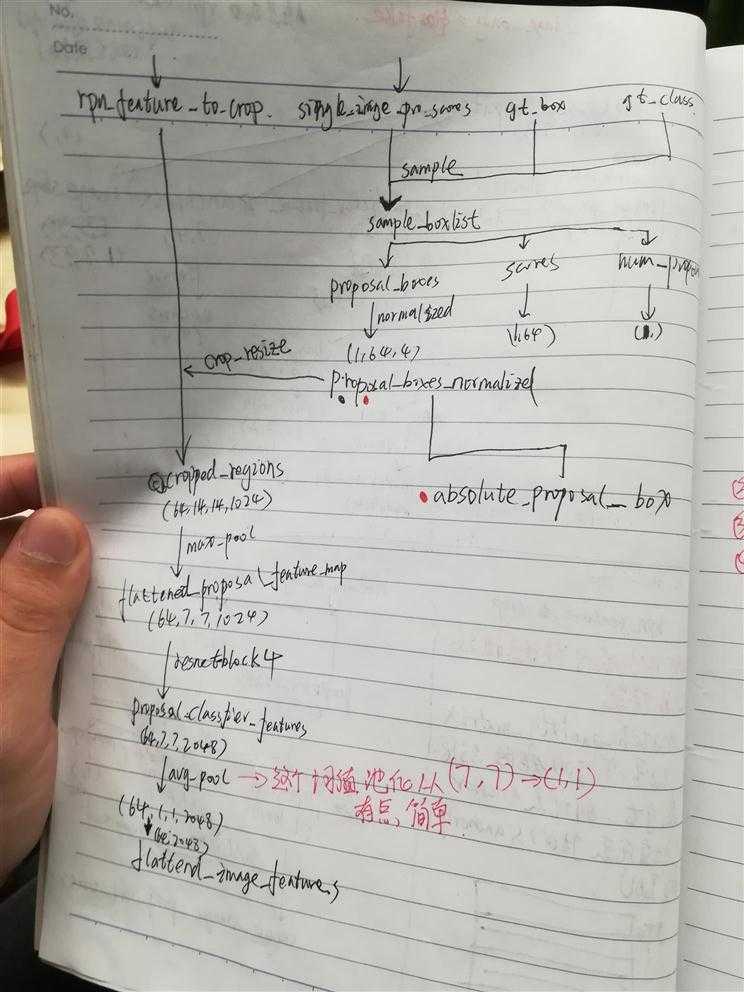 No.
Date
rpn_feature_to_crop. single_image_pn_scores gt_box gt_class
sample
sample_boxlist
proposal_boxes scores
normalized
(1,64,4) (1,64)
crop_resize
proposal_boxes_normalized
cropped_regions
(64,14,14,1024)
absolute_proposal_box
max_pool
flattened_proposal_feature_map
(64,7,7,1024)
resnetblock4
proposal_classfier_features
(64,7,7,2048)
avg_pool → 这个均值池化从 (7,7)→(1,1)
有点简单.
(64,1,1,2048)
(64,2048)
flattend_image_features